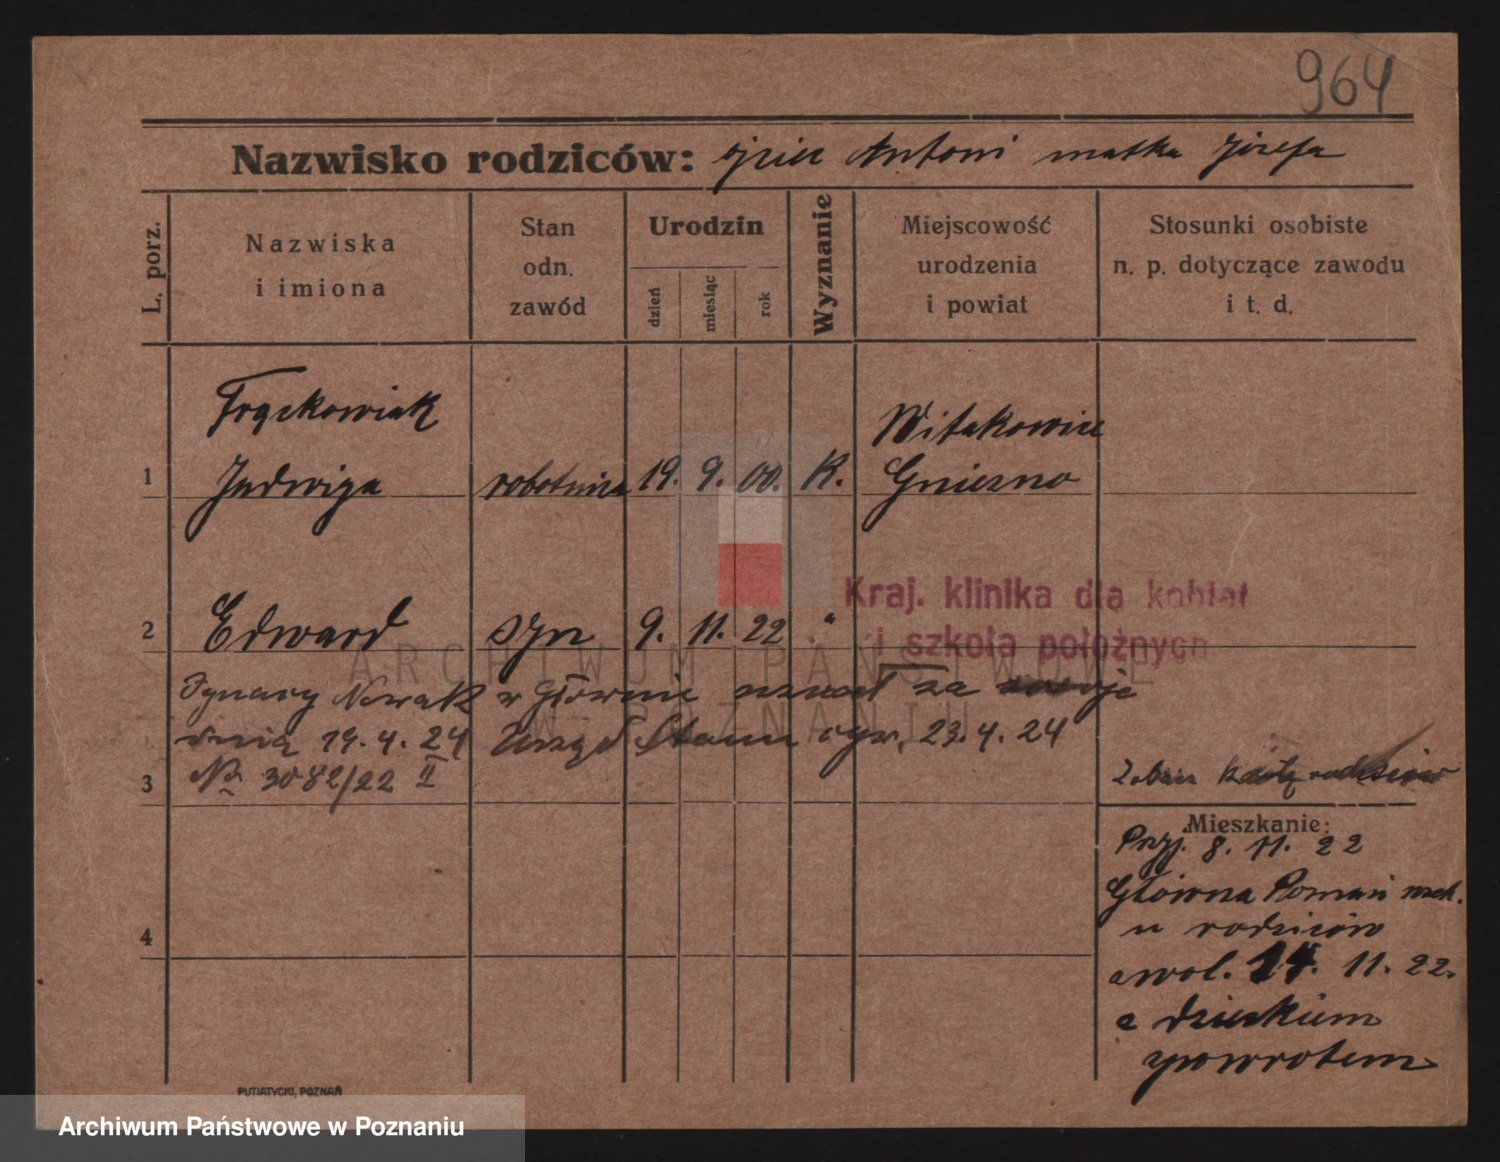 964
Nazwisko rodziców: ojciec Antoni matka Józefa
L. porz.
Nazwiska i imiona
Stan odn. zawód
Urodzin
dzień miesiąc rok
Wyznanie
Miejscowość urodzenia i powiat
Stosunki osobiste n. p. dotyczące zawodu i t. d.
Frąckowiak Witakowice
1 Jadwiga robotnica 19. 9. 00. K. Gniezno
Kraj. klinika dla kobiet
i szkoła położnych
2 Edward syn 9. 11. 22 "
Ignacy Nowak w Głównie uznał za swoje
dnia 19. 4. 24 Urząd Stanu cyw. 23. 4. 24
3 № 3082/22 II
Zobacz kartę rodziców
Mieszkanie:
Przyj. 8. 11. 22
Główna Poznań wsch.
u rodziców
4
zwol. 14. 11. 22.
z dzieckiem
zpowrotem
PUTIATYCKI, POZNAŃ
ARCHIWUM PAŃSTWOWE
W POZNANIU
Archiwum Państwowe w Poznaniu